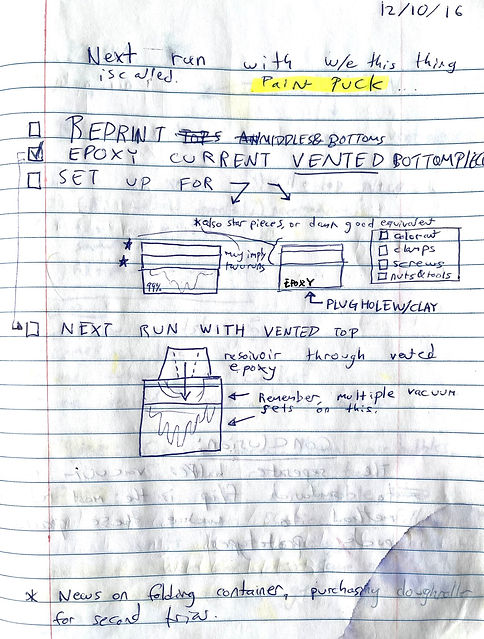 12/10/16
Next run with w/e this thing
is called.
Paint Puck ...
REPRINT TOPS AN MIDDLES & BOTTOMS
EPOXY CURRENT VENTED BOTTOMPIECE
SET UP FOR
*also star pieces, or damn good equivalent
may imply
two runs
99%
EPOXY
colorant
clamps
screws
nuts & tools
PLUG HOLE W/CLAY
NEXT RUN WITH VENTED TOP
resoivoir through vented
epoxy
Remember, multiple vacuum
sets on this.
* News on folding container, purchasing
for second trias.